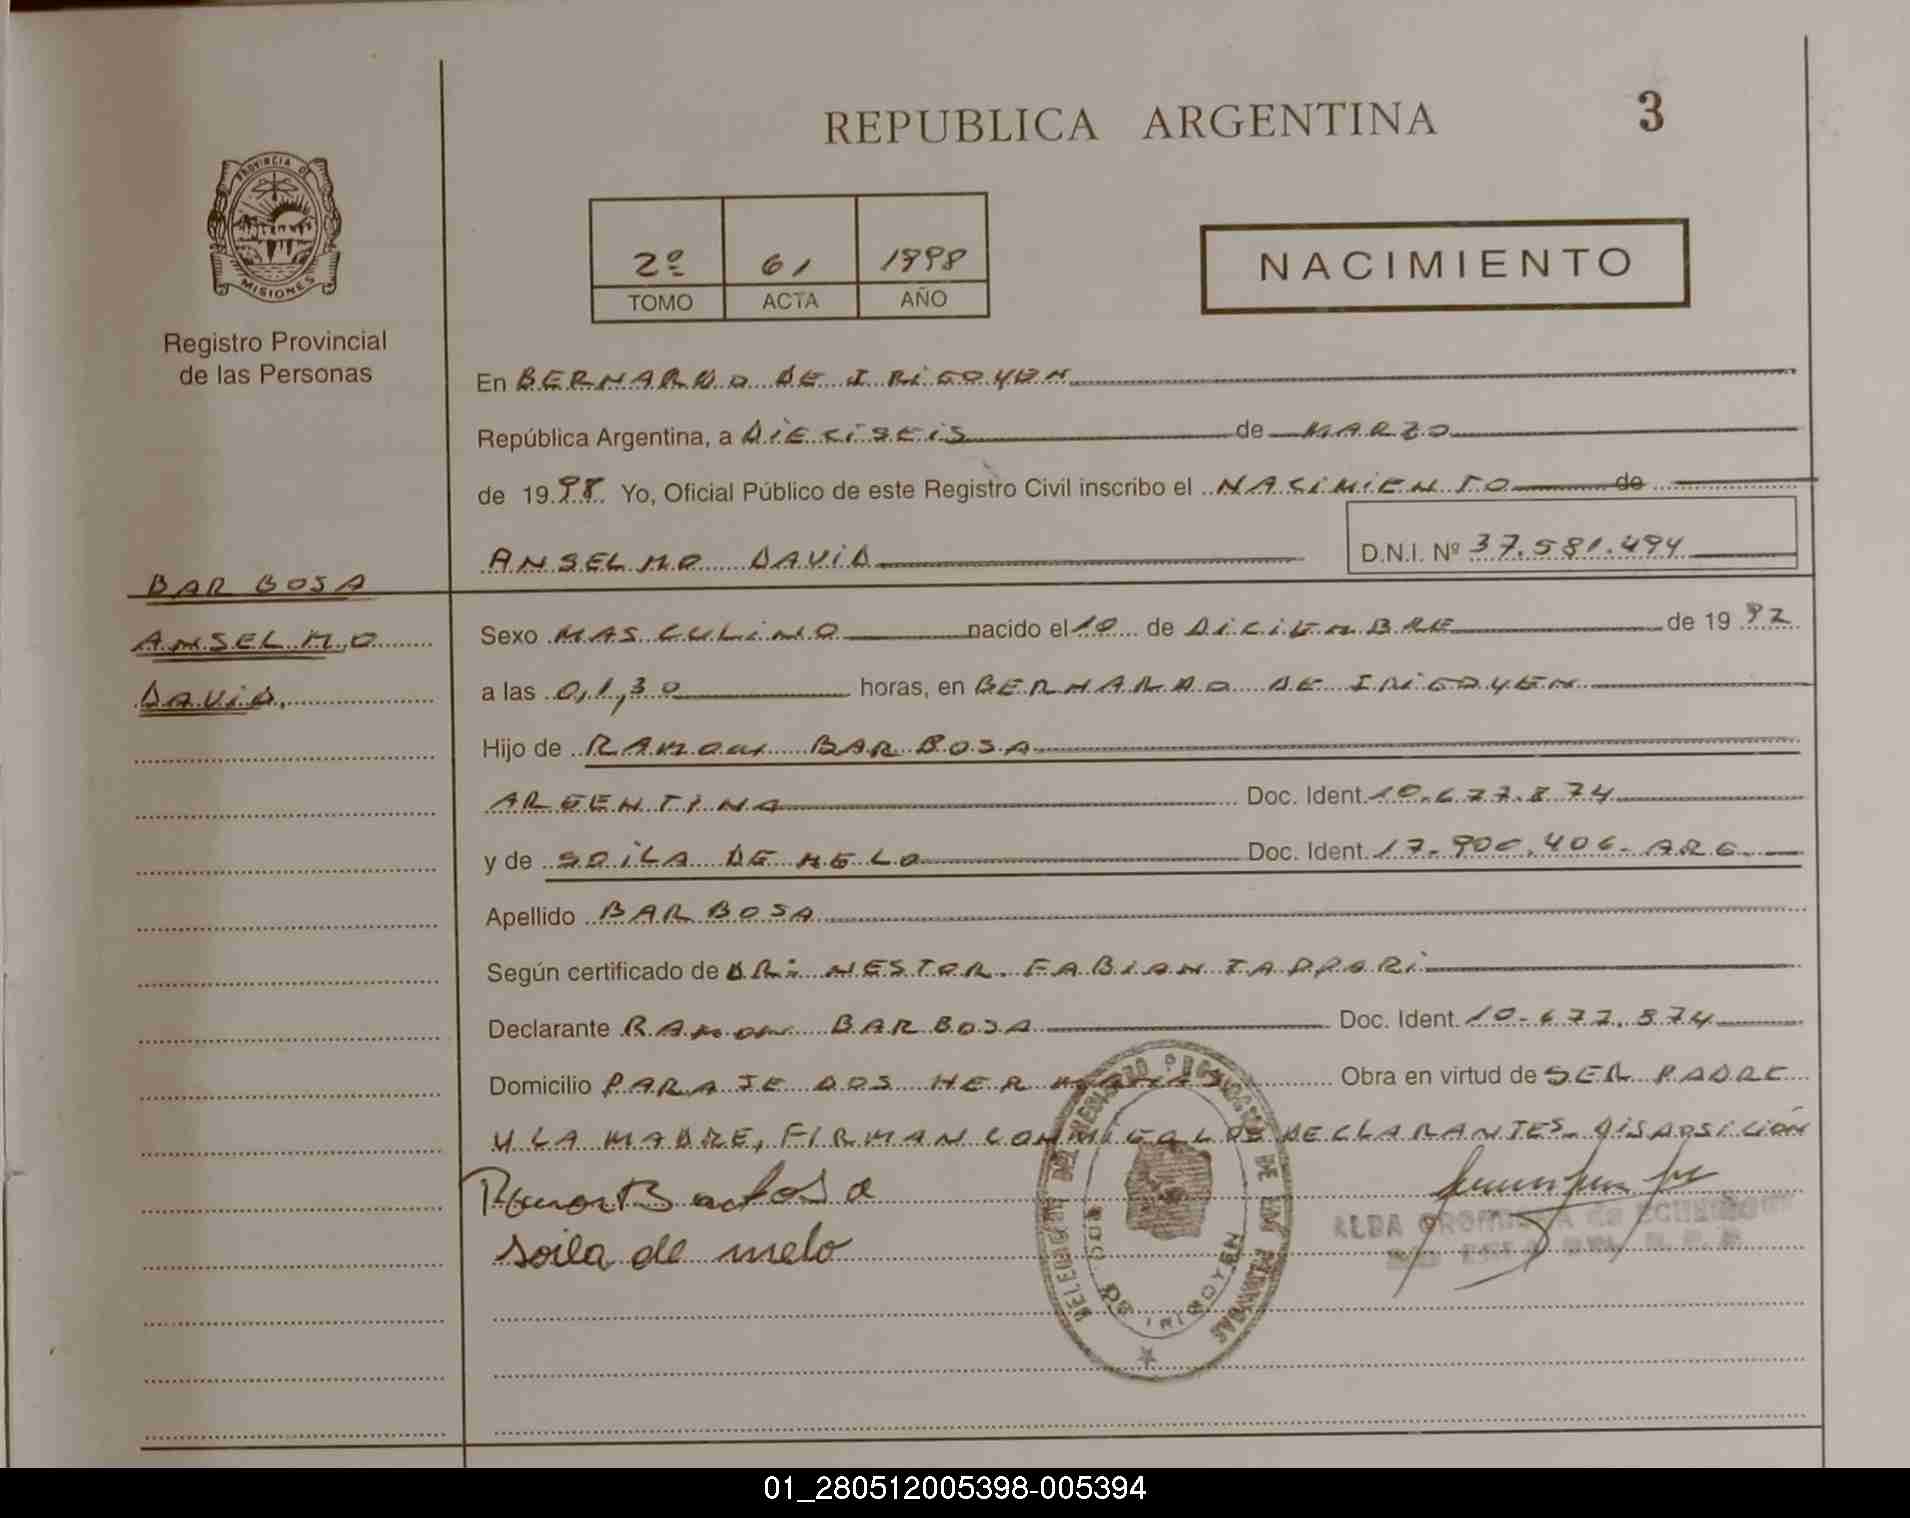 REPUBLICA ARGENTINA
3
PROVINCIA DE
MISIONES
Registro Provincial
de las Personas
2º 61 1998
TOMO ACTA AÑO
NACIMIENTO
En BERNARDO DE IRIGOYEN
República Argentina, a DIECISEIS de MARZO
de 1998. Yo, Oficial Público de este Registro Civil inscribo el NACIMIENTO de
ANSELMO DAVID D.N.I. Nº 37.581.494
BARBOSA
ANSELMO
DAVID.
Sexo MASCULINO nacido el 10 de DICIEMBRE de 19 92
a las 0,1,30 horas, en BERNARDO DE IRIGOYEN
Hijo de RAMON BARBOSA
ARGENTINA Doc. Ident. 10.677.874
y de SOILA DE MELO Doc. Ident. 17.900.406- ARG.
Apellido BARBOSA
Según certificado de DR: NESTOR FABIAN TAPPARI
Declarante RAMON BARBOSA Doc. Ident. 10.677.874
Domicilio PARAJE DOS HERMANAS Obra en virtud de SER PADRE
Y LA MADRE, FIRMAN CONMIGO LOS DECLARANTES. DISPOSICIÓN
Ramon Barbosa
soila de melo
DE LAS PERSONAS
IRIGOYEN
ALBA
01_280512005398-005394